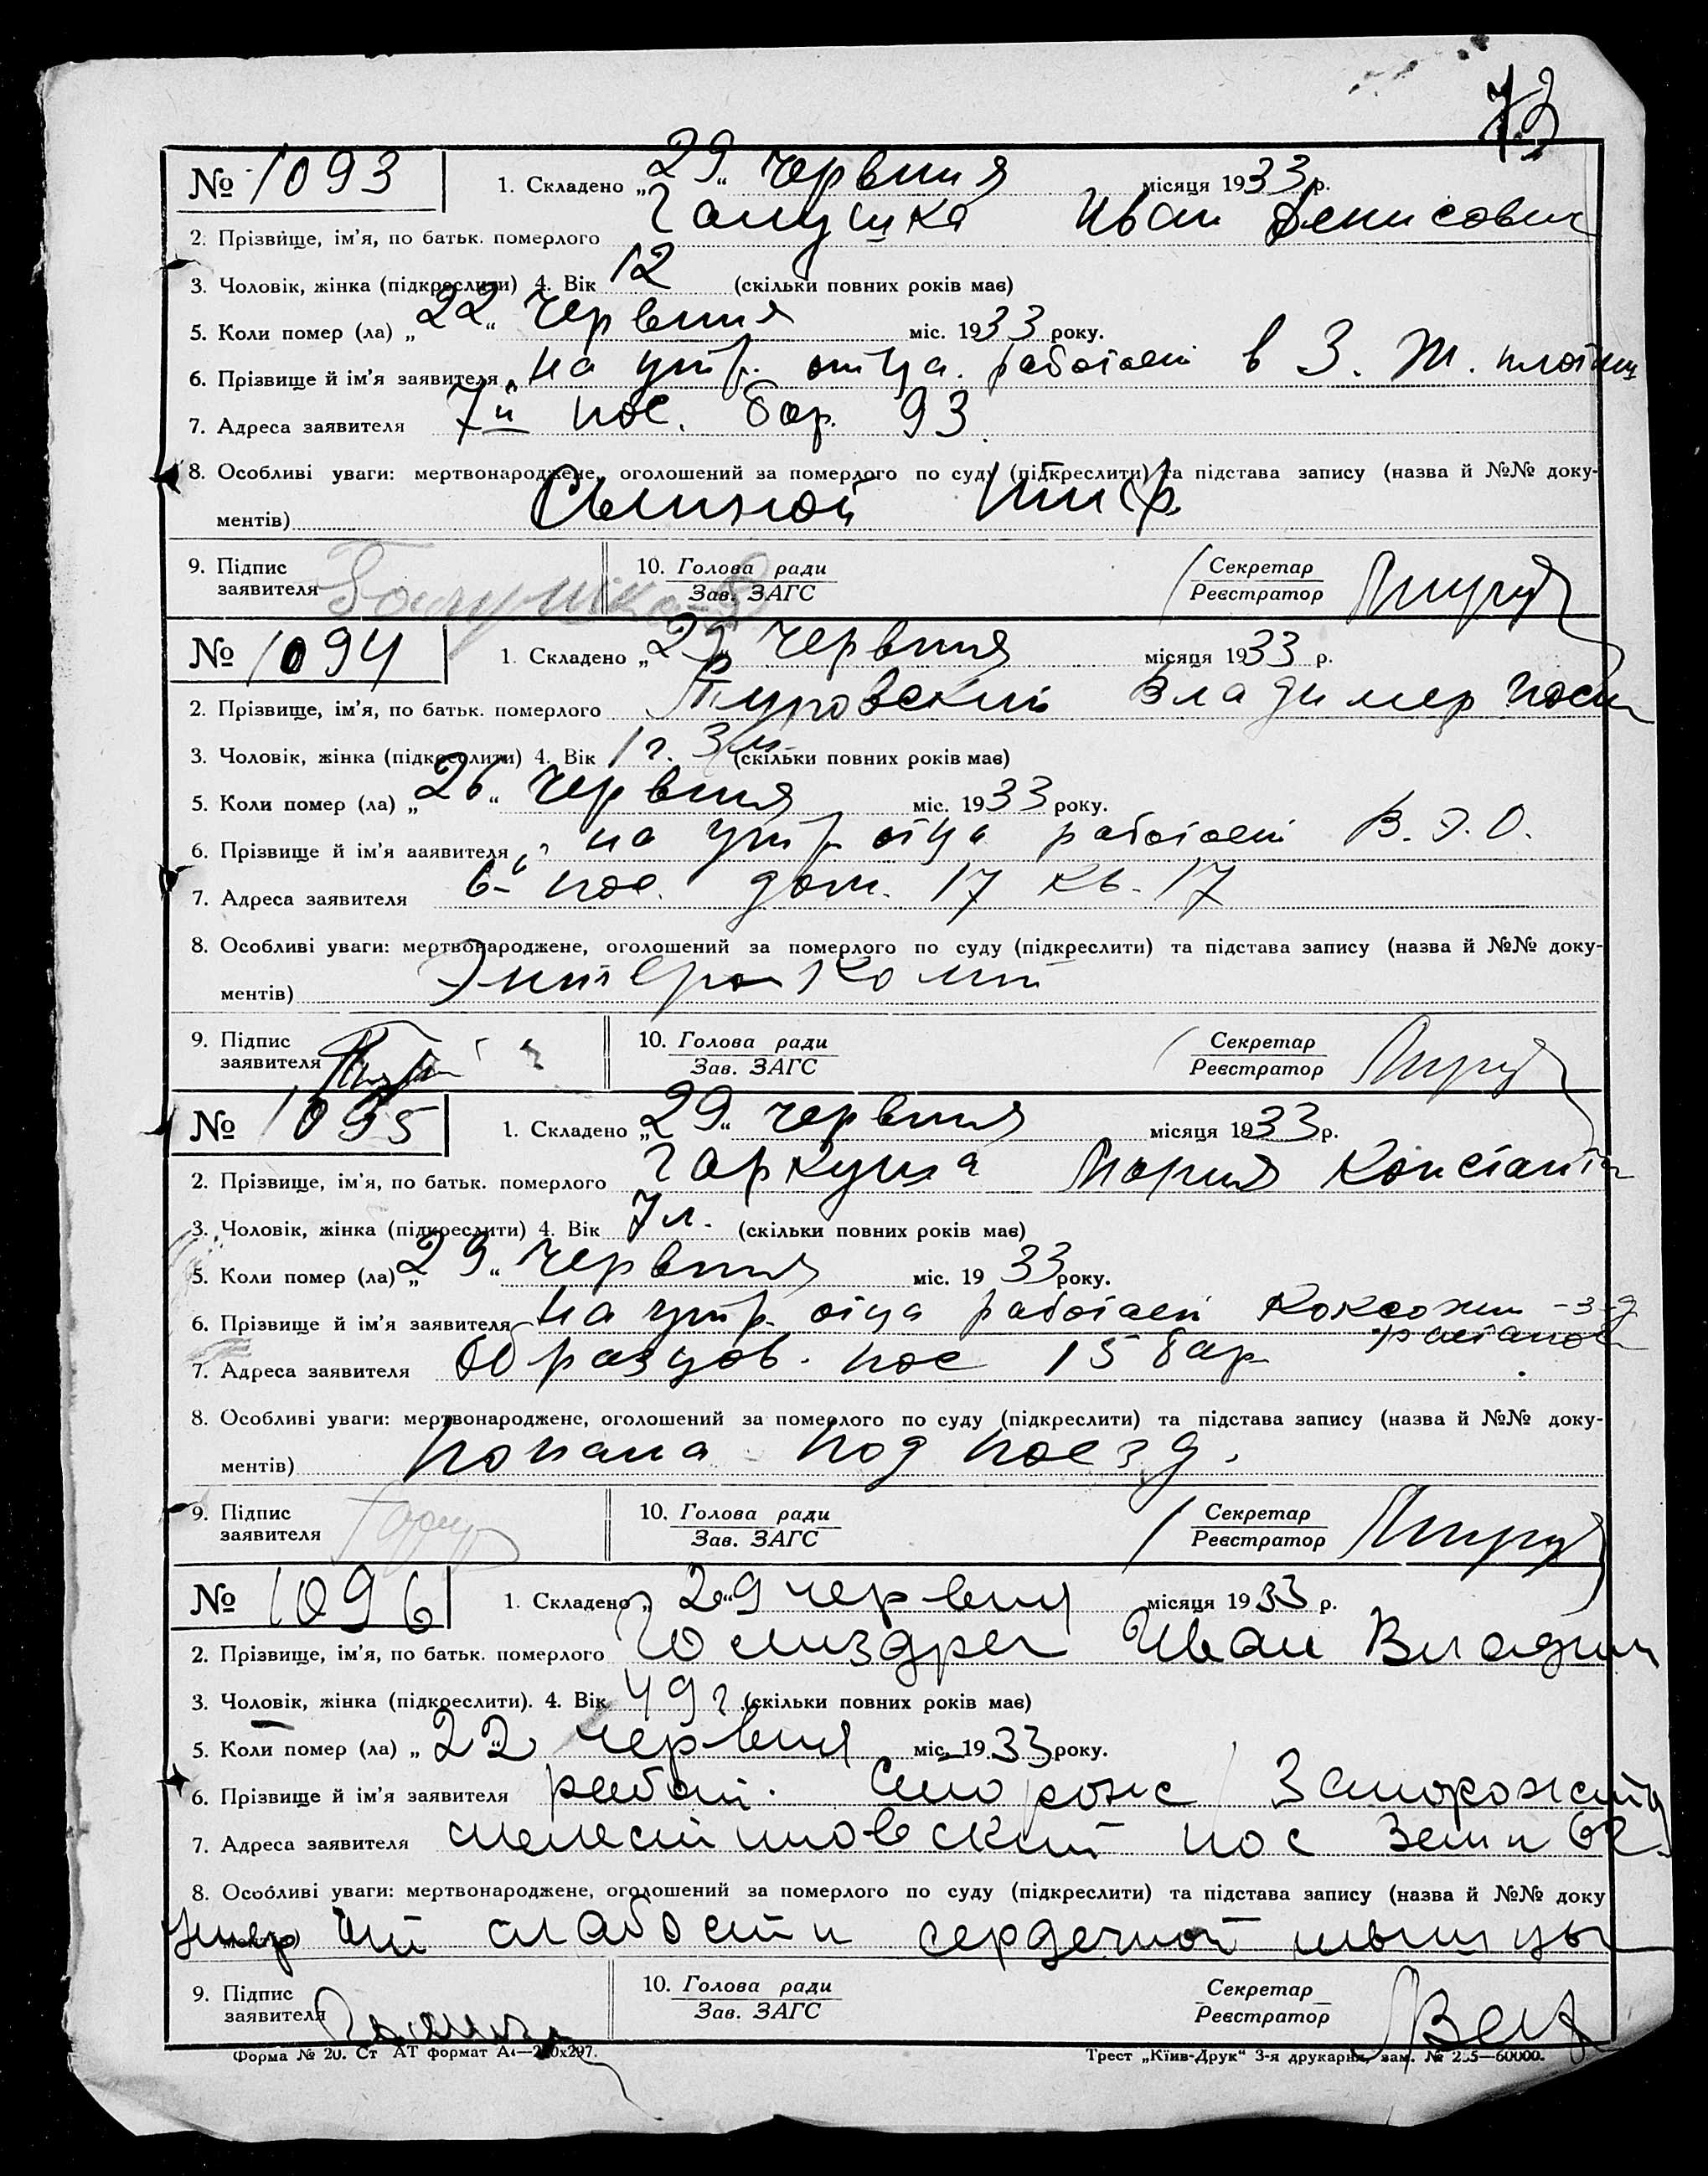 73
№ 1093
1. Складено „29“ червния місяця 1933 р.
2. Прізвище, ім’я, по батьк. померлого Галушка Иван Денисович
3. Чоловік, жінка (підкреслити) 4. Вік 12 (скільки повних років має)
5. Коли помер (ла) „22“ червния міс. 1933 року.
6. Прізвище й ім’я заявителя на ижд. отца. работает в З. Ж.
7. Адреса заявителя 7й пос. бар. 93
8. Особливі уваги: мертвонароджене, оголошений за померлого по суду (підкреслити) та підстава запису (назва й №№ доку-
ментів) Сыпной тиф
9. Підпис заявителя 10. Голова ради Зав. ЗАГС Секретар Реєстратор
№ 1094
1. Складено „29“ червния місяця 1933 р.
2. Прізвище, ім’я, по батьк. померлого Туровский Владимер
3. Чоловік, жінка (підкреслити) 4. Вік 1 г. 3 м. (скільки повних років має)
5. Коли помер (ла) „26“ червния міс. 1933 року.
6. Прізвище й ім’я ааявителя отца работает В.Э.О.
7. Адреса заявителя 6й пос. дом. 17 кв. 17
8. Особливі уваги: мертвонароджене, оголошений за померлого по суду (підкреслити) та підстава запису (назва й №№ доку-
ментів) Энтероколит
9. Підпис заявителя 10. Голова ради Зав. ЗАГС Секретар Реєстратор
№ 1095
1. Складено „29“ червния місяця 1933 р.
2. Прізвище, ім’я, по батьк. померлого Гаркуша Мария Констант
3. Чоловік, жінка (підкреслити) 4. Вік 7 л. (скільки повних років має)
5. Коли помер (ла) „29“ червния міс. 1933 року.
6. Прізвище й ім’я заявителя отца работает Коксохим
7. Адреса заявителя Образцов. пос 15 бар
8. Особливі уваги: мертвонароджене, оголошений за померлого по суду (підкреслити) та підстава запису (назва й №№ доку-
ментів) попала под поезд.
9. Підпис заявителя 10. Голова ради Зав. ЗАГС Секретар Реєстратор
№ 1096
1. Складено „29 червня місяця 1933 р.
2. Прізвище, ім’я, по батьк. померлого Голиздра Иван Владим
3. Чоловік, жінка (підкреслити). 4. Вік 49 г. (скільки повних років має)
5. Коли помер (ла) „22 червня міс. 1933 року.
6. Прізвище й ім’я заявителя работ. сторож
7. Адреса заявителя пос Земл 62
8. Особливі уваги: мертвонароджене, оголошений за померлого по суду (підкреслити) та підстава запису (назва й №№ доку
умер от слабости сердечной мышцы
9. Підпис заявителя 10. Голова ради Зав. ЗАГС Секретар Реєстратор
Форма № 20. Ст АТ формат А4—210х297. Трест „Київ-Друк“ 3-я друкарня, зам. № 60000.